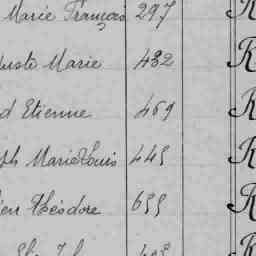 Marie François 297 R
uste Marie 432 R
d Etienne 469 R
ph Marie Louis 445 R
ien Théodore 655 R
R